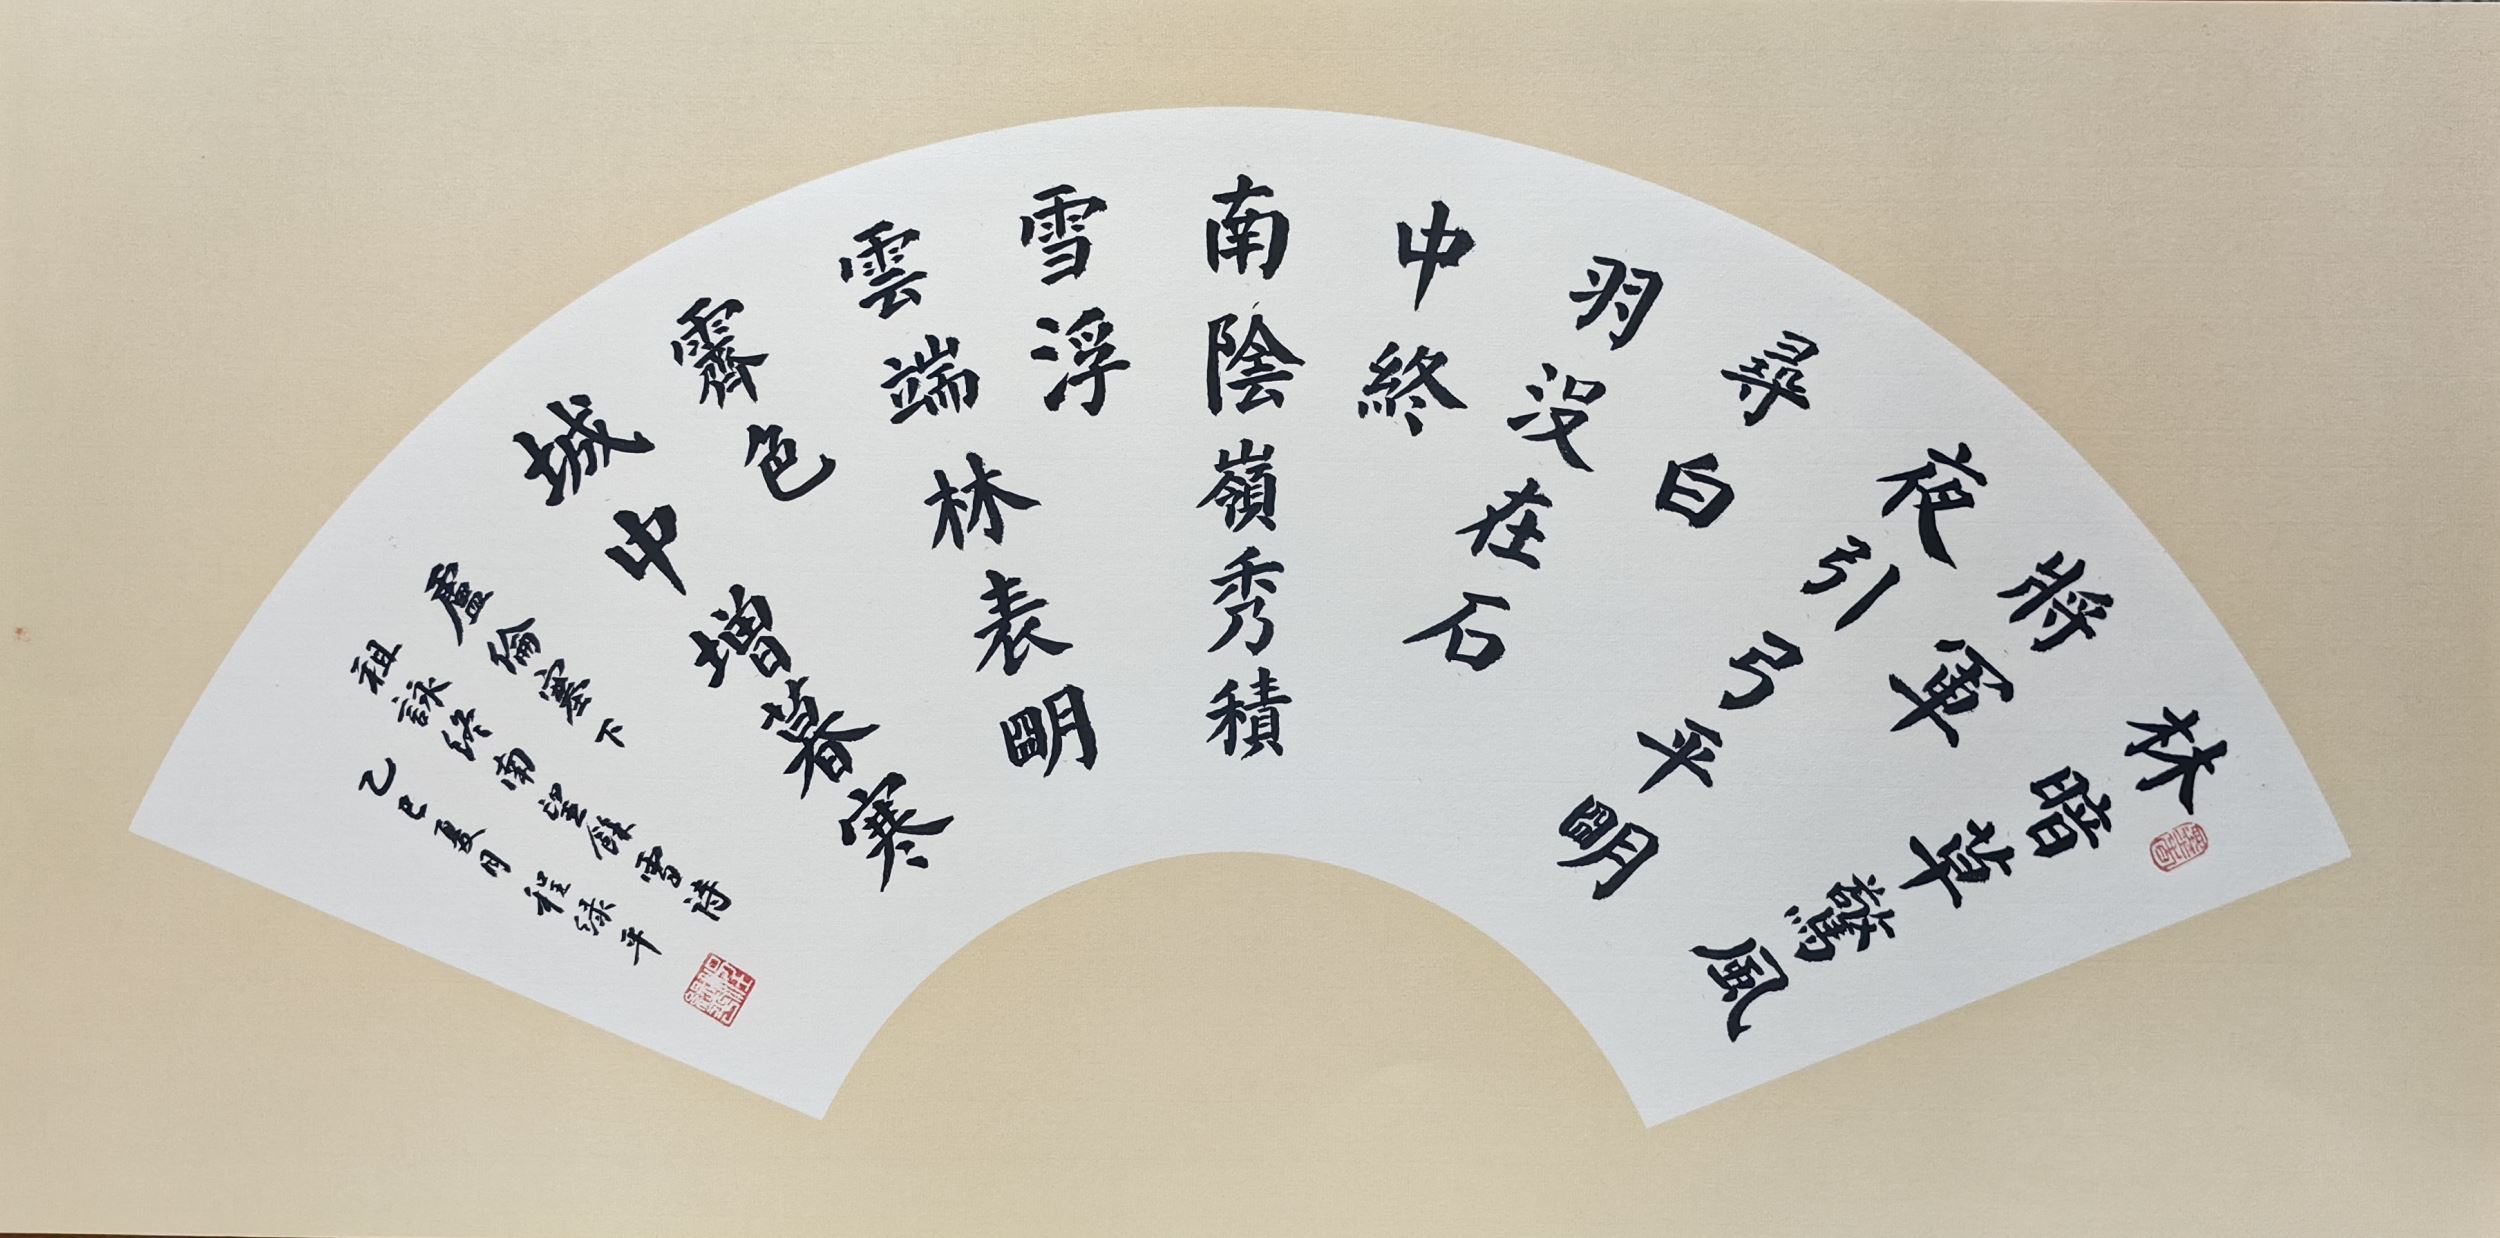 林暗草驚風
將軍
夜引弓平明
尋白
羽没在石
中終
南陰嶺秀積
雪浮
雲端林表明
霽色
城中增暮寒
盧綸塞下
祖詠終南望餘雪詩
乙巳夏月程緑平